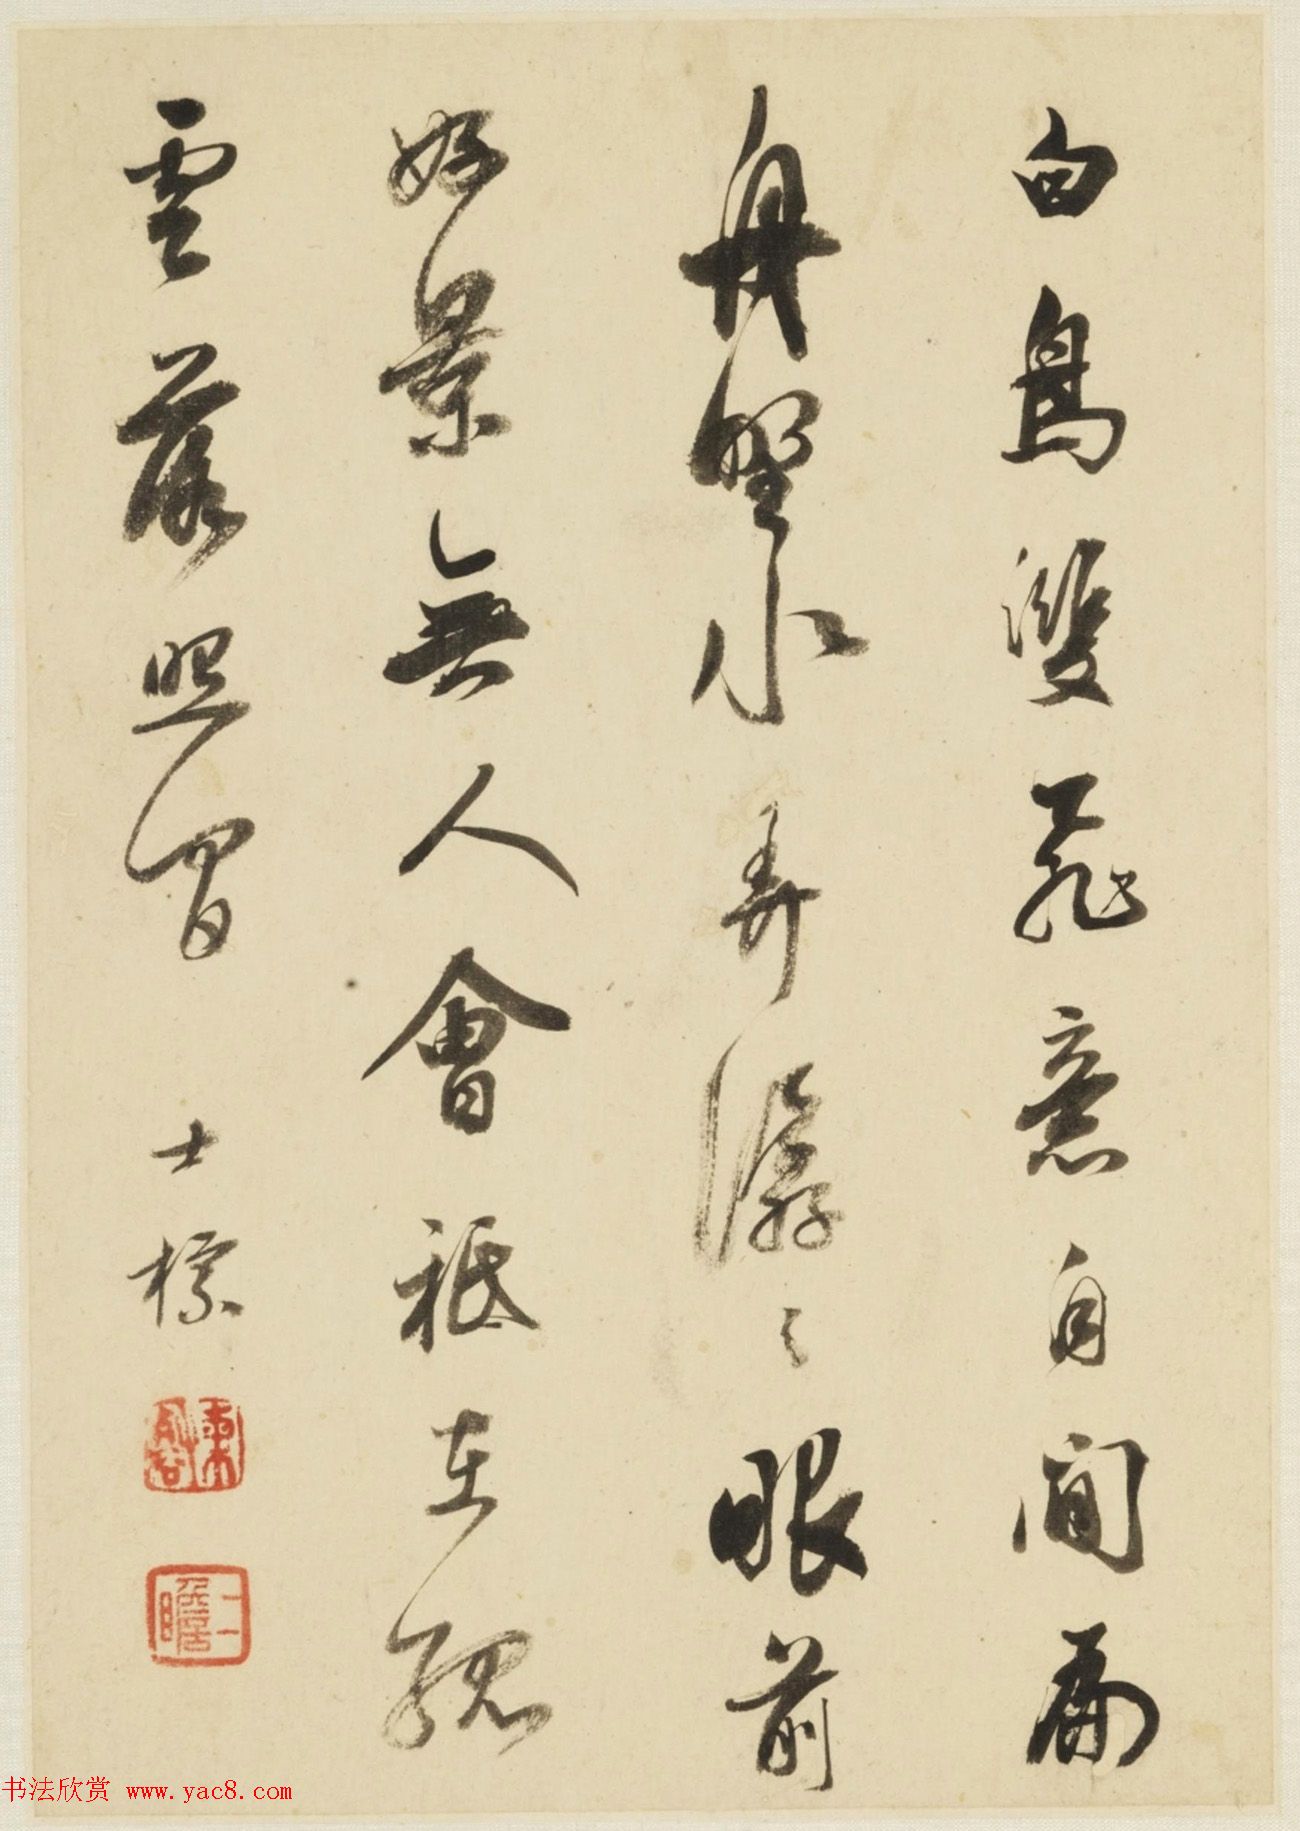 白鳥雙飛意自閒扁
舟野水弄潺〻眼前
好景無人會秪在孤
雲落照間
士標
二瞻
书法欣赏 www.yac8.com